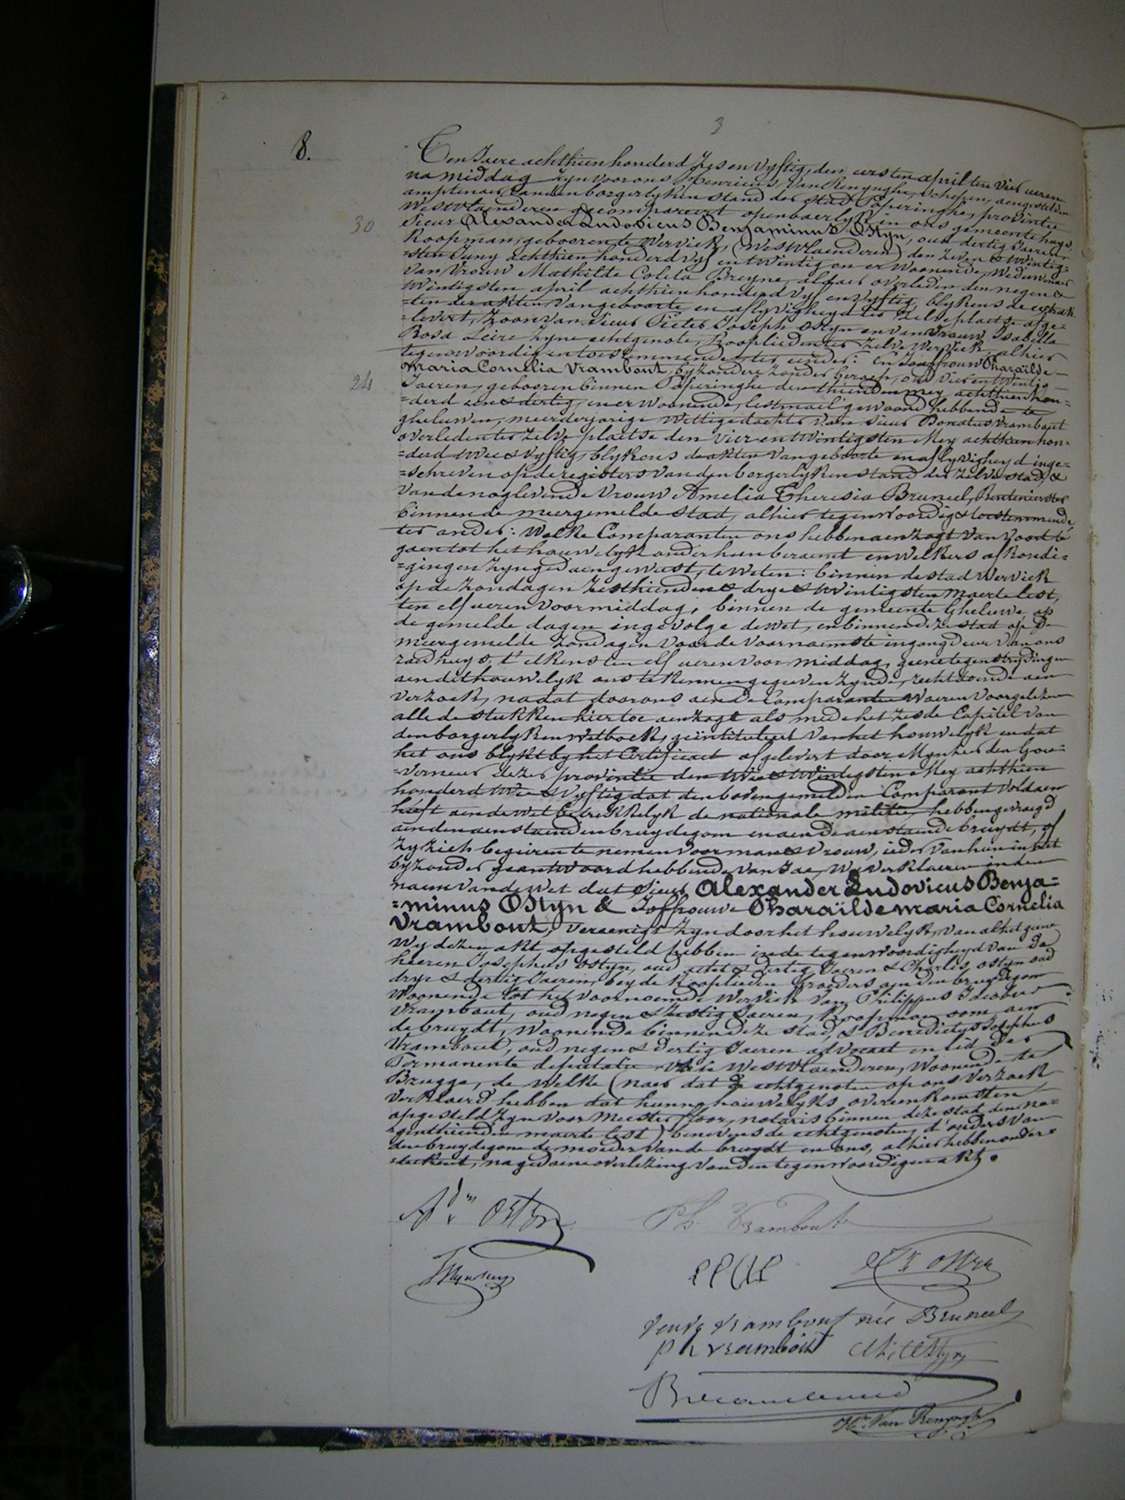 3
8.
Ten Jaere achthien honderd Zes en vyftig, den eersten april ten vier ueren
na middag zyn voor ons Henricus Van Renynghe, schepen, aengestelden
amptenaer van den borgerlyken stand der stad Poperinghe, provintie
Westvlaenderen gecompareert openbaerlyk in ons gemeentehuys,
30
Sieur Alexander Ludovicus Benjaminus Ostyn, oud dertig jaeren
Koopman, gebooren te Wervick, (Westvlaenderen) den zeven & twintig-
-sten Juny achthien honderd vyf en twintig en er woonende, Weduwnaer
van vrouw Mathilde Coleta Breyne, aldaer overleden den negen &
twintigsten april achthien honderd vyf en vyftig, blykens de extrak-
-ten der akten van geboorte en aflyvigheyd ter zelve plaetse afge-
-levert, Zoon van Sieur Pieter Joseph Ostyn en van vrouw Isabella
Rosa Leire zyne echtgenote, Kooplieden ter zelve Wervick, alhier
tegenwoordig en toestemmende ter eender: En Joeffrouw Pharaïlde
Maria Cornelia Vrambout, byzondere zonder beroep, oud vier en twintig
24
Jaeren, gebooren binnen Poperinghe den thienden mey achthien hon-
-derd een & dertig, en er woonende, lestmael gewoond hebbende te
Gheluwe, meerderjarige wettige dochter van Sieur Donatus Vrambout
overleden ter zelve plaetse den vier en twintigsten Mey achthien hon-
-derd twee & vyftig, blykens de akten van geboorte en aflyvigheyd inge-
-schreven op de registers van den borgerlyken stand der zelve stad, &
van de nog levende vrouw Amelia Theresia Bruneel, Rentenierster
binnen de meergemelde stad, alhier tegenwoordig & toestemmende
ter ander: Welke Comparanten ons hebben aenzogt van voort te
gaen tot het houwelyk onder hun beraemt en welkers afkondi-
-gingen zyn gedaen geweest, te weten: binnen de stad Wervick
op de zondagen zesthienden & drye & twintigsten Maerte lest,
ten elf ueren voormiddag, binnen de gemeente Gheluwe op
de gemelde dagen ingevolge de wet, en binnen deze stad op de
meergemelde zondagen voor de voornaemste ingangdeur van ons
raedhuys, t'elkens ten elf ueren voor middag, geene tegenstrydingen
aen dit houwelyk ons te kennen gegeven zynde, recht doende aen
verzoek, na dat door ons aen de Comparanten waeren voorgelezen
alle de stukken hier toe aenzogt als mede het zesde Capitel van
den borgerlyken Wetboek, geintituleert van het houwelyk en dat
het ons blykt by het Certificaet afgelevert door Mynheer den Gou-
-verneur dezer provintie den twee & twintigsten Mey achthien
honderd twee & vyftig dat den bovengemelden Comparant voldaen
heeft aen de wet betrekkelyk de nationale militie, hebben gevraegd
aen den aenstaenden bruydegom en aen de aenstaende bruydt, of
zy zich begeeren te nemen voor man & vrouw, ieder van hun in het
byzonder geantwoord hebbende van Jae, Wy verklaeren in den
naem van de wet dat Sieur Alexander Ludovicus Benja-
-minus Ostyn & Joffrouwe Pharaïlde Maria Cornelia
Vrambout, vereenigt zyn door het houwelyk, van al het geene
Wy dezen akt opgesteld hebben in de tegenwoordigheyd van de
heeren Josephus Ostyn, oud acht & dertig Jaeren & Charles Ostyn oud
drye & dertig Jaeren, beyde Kooplieden broeders aen den bruydegom
Woonende tot het voornoemde Wervick van Philippus Jacobus
Vrambout, oud negen & Zestig Jaeren, Koopman oom aen
de bruydt, woonende binnen deze stad, & Benedictus Josephus
Vrambout, oud negen & dertig Jaeren advocaet en lid der
Permanente deputatie van Westvlaenderen, Woonende te
Brugge, de welke (naer dat de echtgenoten op ons verzoek
verklaerd hebben dat hunne houwelyks overeenkomsten
opgesteld zyn voor meester Floor, notaris binnen deze stad den ne-
-genthienden maerte lest) benevens de echtgenoten, d'ouders van
den bruydegom de moeder van de bruydt en ons, alhier hebben onder-
-teekent, na gedaene overlezing van den tegenwoordigen akt.
Ostyn
Ph Vrambout
veuve vrambout née Bruneel
ph vrambout
Ch Ostyn
B Vrambout
Hri Van Renynghe